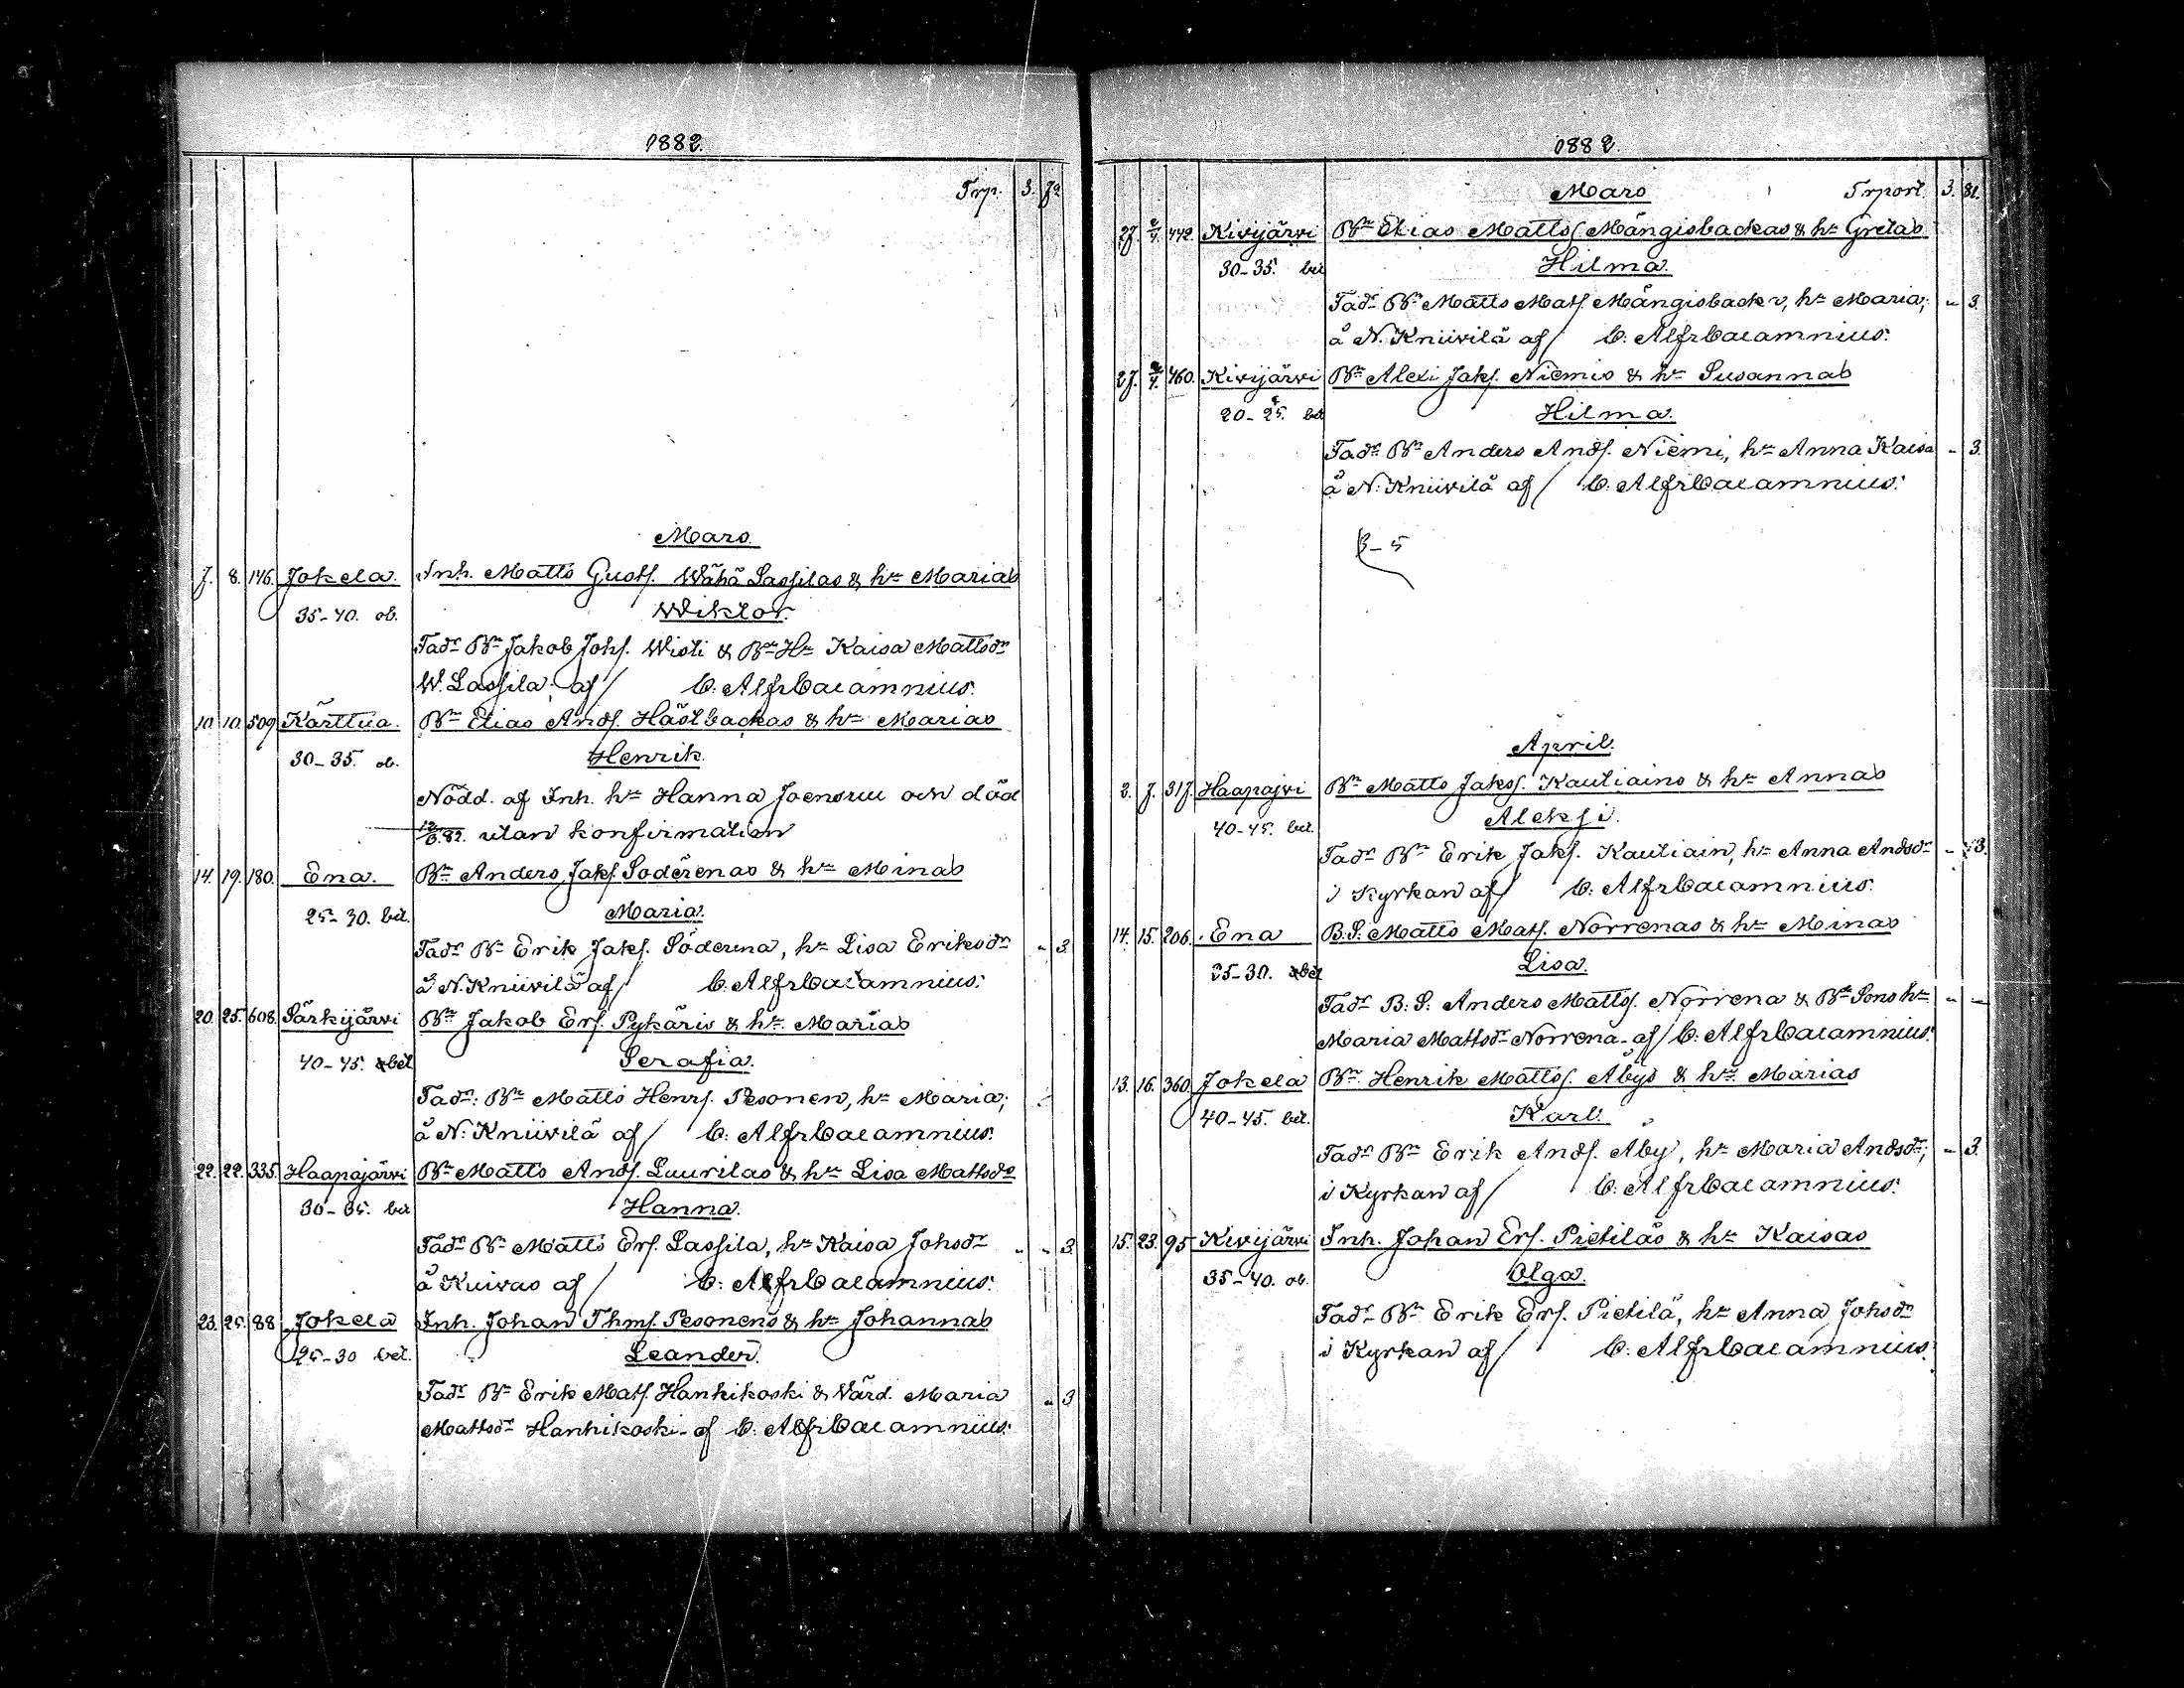 1882.
Trp. 3. 72
Mars.
7. 8. 146. Jokela. Inh. Matts Gustf. Wähä Lassilas & hu Marias
35-40. ob. Wiktor.
Fadr Bn Jakob Johs. Wisti & Bn Hu Kaisa Mattsdr
W. Lassila, af / C: Alfr Calamnius.
10. 10. 509. Kärttua. Bn Elias Ands. Hästbackas & hu Marias
30-35. ob. Henrik.
Nödd. af Inh. hu Hanna Joensuu och död
12/3.82. utan konfirmation
14. 19. 180. Ena. Bn Anders Jaks. Söderenas & hu Minas
25-30. bet. Maria.
Fadr Bn Erik Jaks. Söderena, hu Lisa Eriksdr " 3.
å N. Kniivilä af / C: Alfr Calamnius.
20. 25. 608. Särkijärvi Bn Jakob Ers. Pykäris & hu Marias
40-45. bet Serafia.
Fadr: Bn Matts Henrs. Pesonen, hu Maria;
å N: Kniivilä af / C: Alfr Calamnius.
22. 22. 335. Haapajärvi Bn Matts Ands. Luurilas & hu Lisa Mattsdr
30-35. bet Hanna.
Fadr Bn Matts Ers. Lassila, hu Kaisa Johsdr " 3.
å Kuivas af / C: Alfr Calamnius.
23. 25. 88 Jokela Inh. Johan Thms. Pesonens & hu Johannas
25-30 bet. Leander.
Fadr Bn Erik Mats. Hanhikoski & Värd. Maria " 3
Mattsdr Hanhikoski - af C: Alfr Calamnius.
1882.
Mars Trport. 3. 81.
27. 2/4. 442. Kivijärvi Bn Elias Matts. Mängisbackas & hu Gretas
30-35. bet Hilma.
Fadr Bn Matts Mats. Mängisback, hu Maria; " 3.
å N. Kniivilä af / C: Alfr Calamnius.
27. 2/4. 460. Kivijärvi Bn Alexi Jaks. Niemis & hu Susannas
20-25. bet Hilma.
Fadr Bn Anders Ands. Niemi, hu Anna Kaisa " 3.
å N: Kniivilä af / C: Alfr Calamnius.
B-5
April.
2. 7. 317. Haapajvi Bn Matts Jakss. Kautiains & hu Annas
40-45. bet. Aleksi.
Fadr Bn Erik Jaks. Kautiain, hu Anna Andsdr - 3.
i Kyrkan af / C: Alfr Calamnius.
14. 15. 206. Ena B.S. Matts Mats. Norrenas & hu Minas
25-30. bet Lisa.
Fadr B: S: Anders Matts. Norrena & Bn Sons hu " -
Maria Mattsdr Norrena - af / C: Alfr Calamnius.
13. 16. 360. Jokela Bn Henrik Matts. Åbys & hu Marias
40-45. bet. Karl.
Fadr Bn Erik Ands. Åby, hu Maria Andsdr; " 3.
i Kyrkan af / C: Alfr Calamnius.
15. 23. 95 Kivijärvi Inh. Johan Ers. Pietiläs & hu Kaisas
35-40. ob. Olga.
Fadr Bn Erik Ers. Pietilä, hu Anna Johsdr
i Kyrkan af / C: Alfr Calamnius.